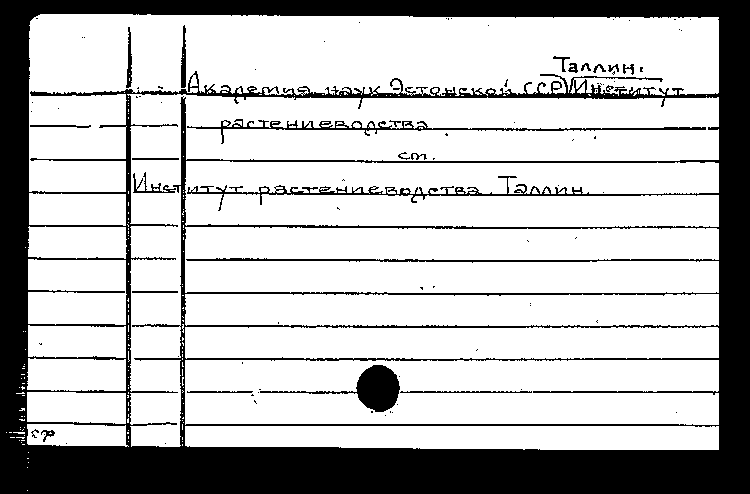 Таллин.
Академия наук Эстонской ССР Институт
растениеводства
см.
Институт растениеводства. Таллин.
ср